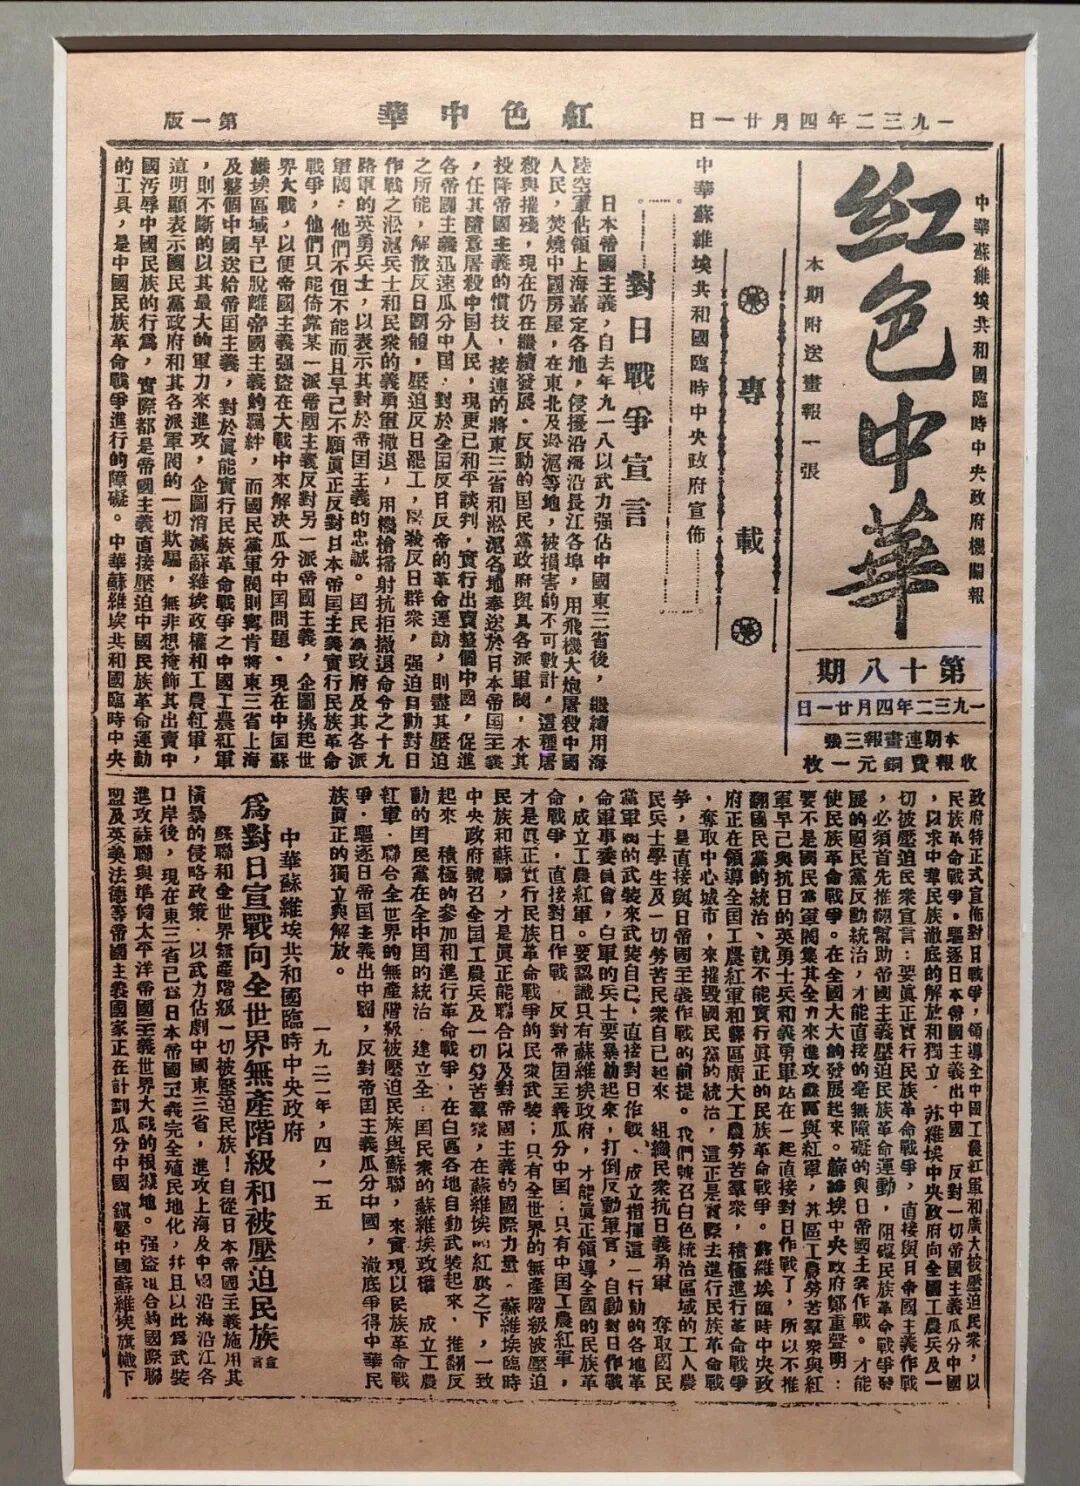 一九三二年四月廿一日
紅色中華
第一版
中華蘇維埃共和國臨時中央政府機關報
红色中華
第十八期
一九三二年四月廿一日
本期連畫報三張
收報費銅元一枚
本期附送畫報一張
專載
中華蘇維埃共和國臨時中央政府宣佈
對日戰爭宣言
日本帝國主義，自去年九一八以武力强佔中國東三省後，繼續用海
陸空軍佔領上海嘉定各地，侵擾沿海沿長江各埠，用飛機大炮屠殺中國
人民，焚燒中國房屋，在東北及淞滬等地，被損害的不可數計，這種屠
殺與摧殘，現在仍在繼續發展。反動的国民黨政府與其各派軍閥，本其
投降帝國主義的慣技，接連的將東三省和淞滬各地奉送於日本帝国主義
，任其隨意屠殺中国人民，現更已和平談判，實行出賣整個中國，促進
各帝國主義迅速瓜分中国，對於全国反日反帝的革命運動，則盡其壓迫
之所能，解散反日團體，壓迫反日罷工，屠殺反日群衆，强迫自動對日
作戰之淞滬兵士和民衆的義勇軍撤退，用機槍掃射抗拒撤退命令之十九
路軍的英勇兵士，以表示其對於帝国主義的忠誠。国民黨政府及其各派
軍閥，他們不但不能而且早已不願眞正反對日本帝国主義實行民族革命
戰爭，他們只能倚靠某一派帝國主義反對另一派帝國主義，企圖挑起世
界大戰，以便帝國主義强盜在大戰中來解决瓜分中国問題。現在中国蘇
維埃區域早已脫離帝國主義的羈絆，而國民黨軍閥則寧肯將東三省上海
及整個中國送給帝国主義，對於眞能實行民族革命戰爭之中國工農紅軍
，則不斷的以其最大的軍力來進攻，企圖消滅蘇維埃政權和工農紅軍，
這明顯表示國民黨政府和其各派軍閥的一切欺騙，無非想掩飾其出賣中
國污辱中國民族的行爲，實際都是帝國主義直接壓迫中國民族革命運動
的工具，是中國民族革命戰爭進行的障礙。中華蘇維埃共和國臨時中央
政府特正式宣佈對日戰爭，領導全中國工農紅軍和廣大被壓迫民衆，以
民族革命戰爭，驅逐日本帝國主義出中國 反對一切帝國主義瓜分中國
，以求中華民族澈底的解放和獨立。苏維埃中央政府向全國工農兵及一
切被壓迫民衆宣言：要眞正實行民族革命戰爭，直接與日帝國主義作戰
，必須首先推翻幫助帝國主義壓迫民族革命運動，阻礙民族革命戰爭發
展的國民黨反動統治，才能直接的毫無障礙的與日帝國主義作戰。才能
使民族革命戰爭。在全國大大的發展起來。蘇維埃中央政府鄭重聲明：
要不是國民黨軍閥集其全力來進攻蘇區與紅軍，苏區工農勞苦羣衆與紅
軍早已與抗日的英勇士兵和義勇軍站在一起直接對日作戰了，所以不推
翻國民黨的統治、就不能實行眞正的民族革命戰爭。蘇維埃臨時中央政
府正在領導全国工農紅軍和蘇區廣大工農勞苦羣衆，積極進行革命戰爭
，奪取中心城市，來摧毁國民黨的統治，這正是實際去進行民族革命戰
爭，是直接與日帝國主義作戰的前提。我們號召白色統治區域的工人農
民兵士學生及一切勞苦民衆自已起來 組織民衆抗日義勇軍 奪取國民
黨軍閥的武裝來武裝自己，直接對日作戰、成立指揮這一行動的各地革
命軍事委員會，白軍的兵士要暴動起來，打倒反動軍官，自動對日作戰
，成立工農紅軍。要認識只有蘇維埃政府，才能眞正領導全國的民族革
命戰爭，直接對日作戰 反對帝国主義瓜分中国：只有中国工農紅軍，
才是真正實行民族革命戰爭的民衆武裝；只有全世界的無產階級被壓迫
民族和蘇聯，才是眞正能聯合以及對帝國主義的國際力量。蘇維埃臨時
中央政府號召全国工農兵及一切勞苦羣衆，在蘇維埃的紅旗之下，一致
起來 積極的參加和進行革命戰爭，在白區各地自動武裝起來，推翻反
動的国民黨在全中国的統治 建立全国民衆的蘇維埃政權 成立工農
紅軍，聯合全世界的無產階級被壓迫民族與蘇聯，來實現以民族革命戰
爭，驅逐日帝国主義出中國，反對帝国主義瓜分中國，澈底爭得中華民
族眞正的獨立與解放。
一九三二年，四，一五
中華蘇維埃共和國臨時中央政府
爲對日宣戰向全世界無產階級和被壓迫民族宣言
蘇聯和全世界無產階級一切被壓迫民族！自從日本帝國主義施用其
橫暴的侵略政策，以武力佔劇中國東三省，進攻上海及中國沿海沿江各
口岸後，現在東三省已爲日本帝國主義完全殖民地化，幷且以此爲武裝
進攻蘇聯與準備太平洋帝國主義世界大戰的根據地。强盜組合的國際聯
盟及英美法德等帝國主義國家正在計劃瓜分中國 鎭壓中國蘇維埃旗幟下